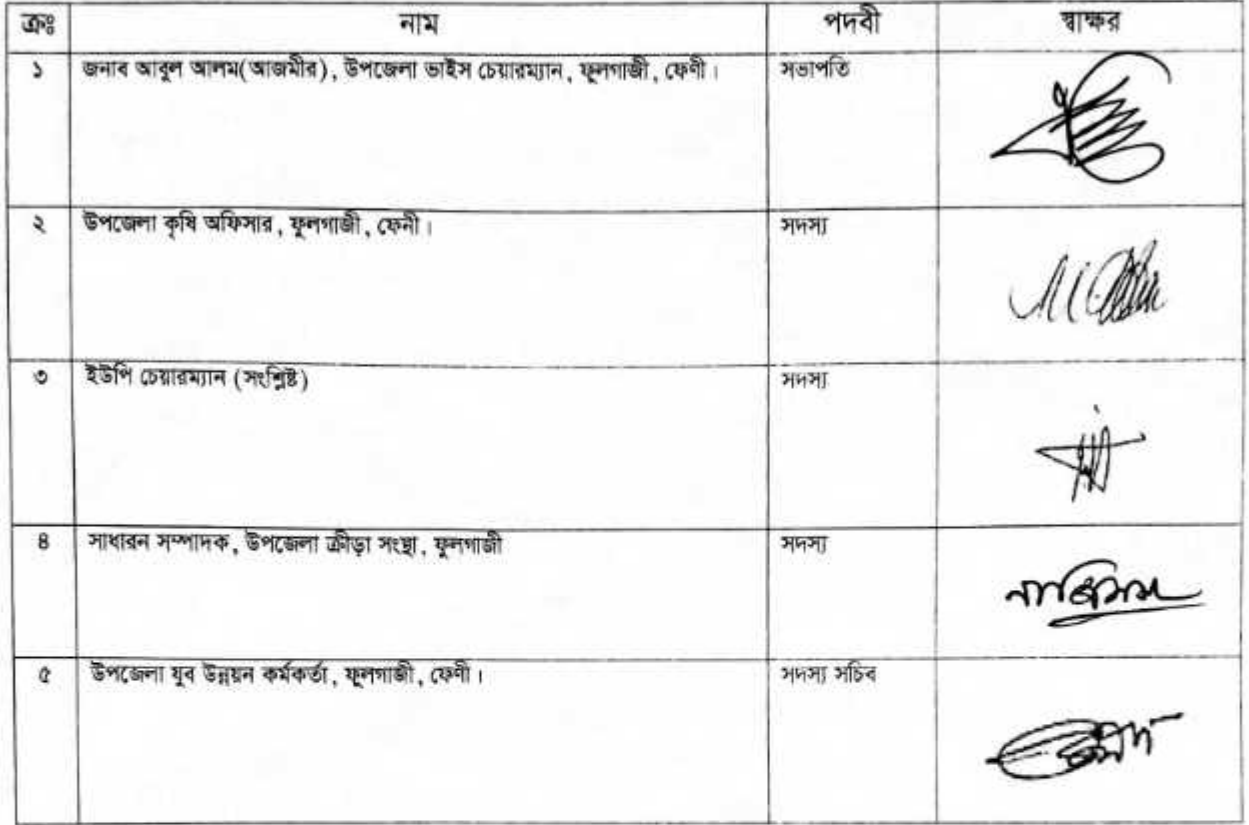 ক্রঃ নাম পদবী স্বাক্ষর
১ জনাব আবুল আলম(আজমীর), উপজেলা ভাইস চেয়ারম্যান, ফুলগাজী, ফেণী। সভাপতি
২ উপজেলা কৃষি অফিসার, ফুলগাজী, ফেনী। সদস্য
৩ ইউপি চেয়ারম্যান (সংশ্লিষ্ট) সদস্য
৪ সাধারন সম্পাদক, উপজেলা ক্রীড়া সংস্থা, ফুলগাজী সদস্য
৫ উপজেলা যুব উন্নয়ন কর্মকর্তা, ফুলগাজী, ফেণী। সদস্য সচিব